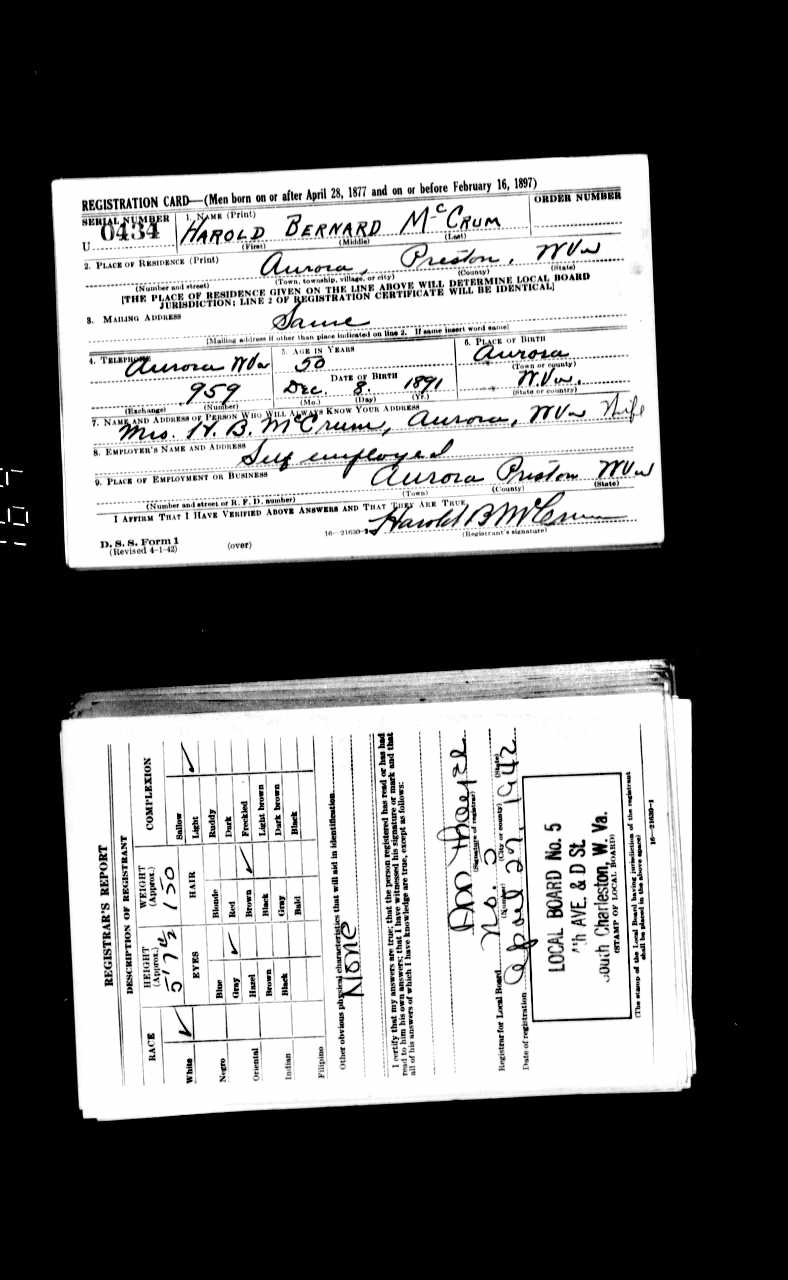 REGISTRATION CARD—(Men born on or after April 28, 1877 and on or before February 16, 1897)
SERIAL NUMBER 1. NAME (Print) ORDER NUMBER
U 0434 HAROLD BERNARD McCRUM
(First) (Middle) (Last)
2. PLACE OF RESIDENCE (Print)
Aurora, Preston, W Va
(Number and street) (Town, township, village, or city) (County) (State)
[THE PLACE OF RESIDENCE GIVEN ON THE LINE ABOVE WILL DETERMINE LOCAL BOARD
JURISDICTION; LINE 2 OF REGISTRATION CERTIFICATE WILL BE IDENTICAL]
3. MAILING ADDRESS
Same
[Mailing address if other than place indicated on line 2. If same insert word same]
4. TELEPHONE 5. AGE IN YEARS 6. PLACE OF BIRTH
Aurora W Va 50 Aurora
DATE OF BIRTH (Town or county)
959 Dec. 8. 1891 W.Va.
(Exchange) (Number) (Mo.) (Day) (Yr.) (State or country)
7. NAME AND ADDRESS OF PERSON WHO WILL ALWAYS KNOW YOUR ADDRESS
Mrs. H. B. McCrum, Aurora, W Va Wife
8. EMPLOYER'S NAME AND ADDRESS
Self employed
9. PLACE OF EMPLOYMENT OR BUSINESS
Aurora Preston W Va
(Number and street or R. F. D. number) (Town) (County) (State)
I AFFIRM THAT I HAVE VERIFIED ABOVE ANSWERS AND THAT THEY ARE TRUE.
Harold B McCrum
D. S. S. Form 1 16—21630-1 (Registrant's signature)
(Revised 4-1-42) (over)
REGISTRAR'S REPORT
DESCRIPTION OF REGISTRANT
RACE HEIGHT (Approx.) WEIGHT (Approx.) COMPLEXION
5' 7 1/2 150
EYES HAIR
White ✓ Blue Blonde Sallow
Negro Gray ✓ Red Light ✓
Oriental Hazel Brown ✓ Ruddy
Indian Brown Black Dark
Filipino Black Gray Freckled
Bald Light brown
Dark brown
Black
Other obvious physical characteristics that will aid in identification
None
I certify that my answers are true; that the person registered has read or has had
read to him his own answers; that I have witnessed his signature or mark and that
all of his answers of which I have knowledge are true, except as follows:
Ann
(Signature of registrar)
Registrar for Local Board No. 5
(Number) (City or county) (State)
Date of registration April 27, 1942
LOCAL BOARD No. 5
AVE. & D St.
South Charleston, W. Va.
(STAMP OF LOCAL BOARD)
(The stamp of the Local Board having jurisdiction of the registrant
shall be placed in the above space)
16—21630-1